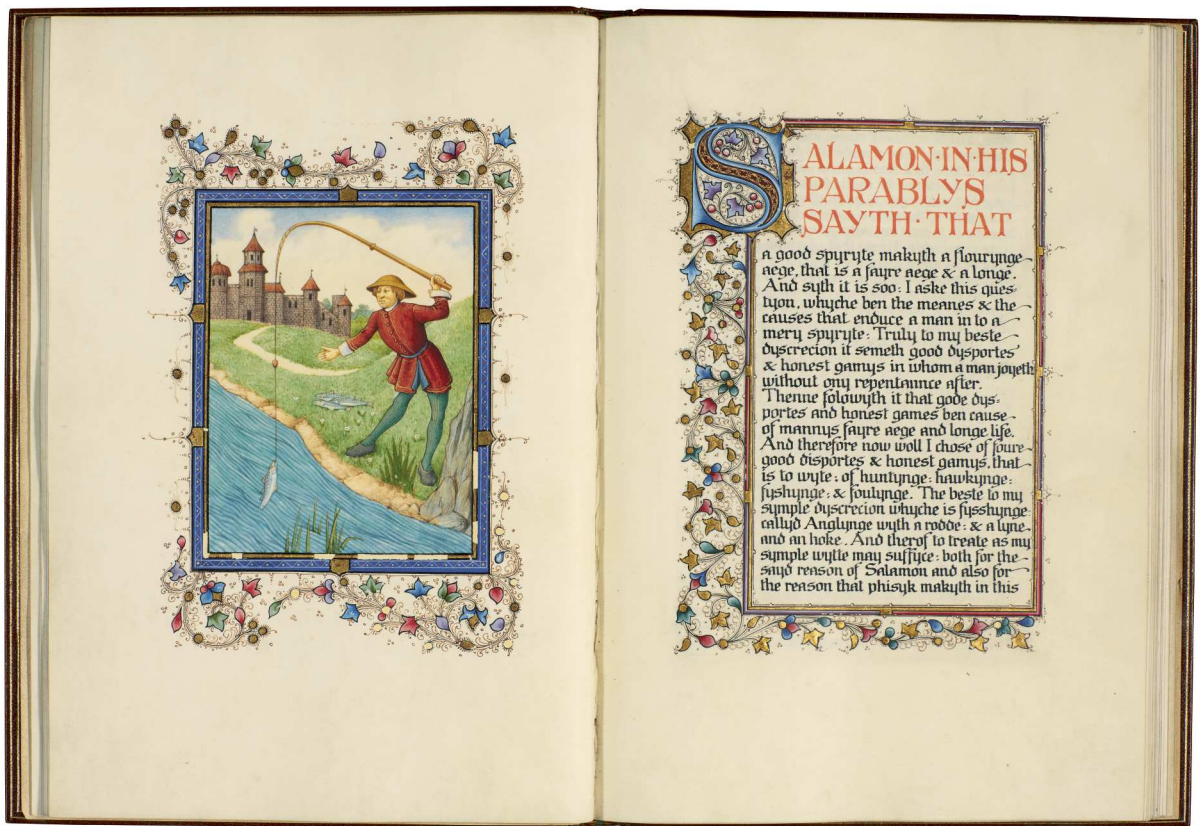 SALAMON·IN·HIS
PARABLYS
SAYTH·THAT
a good spyryte makyth a flourynge
aege, that is a fayre aege & a longe.
And syth it is soo: I aske this ques-
tyon, whyche ben the meanes & the
causes that enduce a man in to a
mery spyryte: Truly to my beste
dyscrecion it semeth good dysportes
& honest gamys in whom a man joyeth
without ony repentannce after.
Thenne folowyth it that gode dys-
portes and honest games ben cause
of mannys fayre aege and longe life.
And therefore now woll I chose of foure
good disportes & honest gamys, that
is to wyte: of huntynge: hawkynge:
fyshynge: & foulynge. The beste to my
symple dyscrecion whyche is fysshynge
callyd Anglynge wyth a rodde: & a lyne
and an hoke. And therof to treate as my
symple wytte may suffyce: both for the
sayd reason of Salamon and also for
the reason that phisyk makyth in this